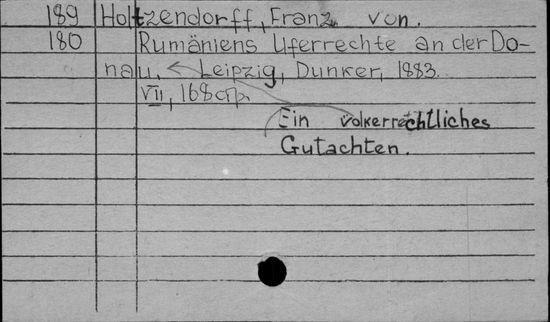 189 Holtzendorff, Franz von.
180 Rumäniens Uferrechte an der Do-
nau. Leipzig, Dunker, 1883.
VII, 168 стр.
Ein völkerrechtliches
Gutachten.